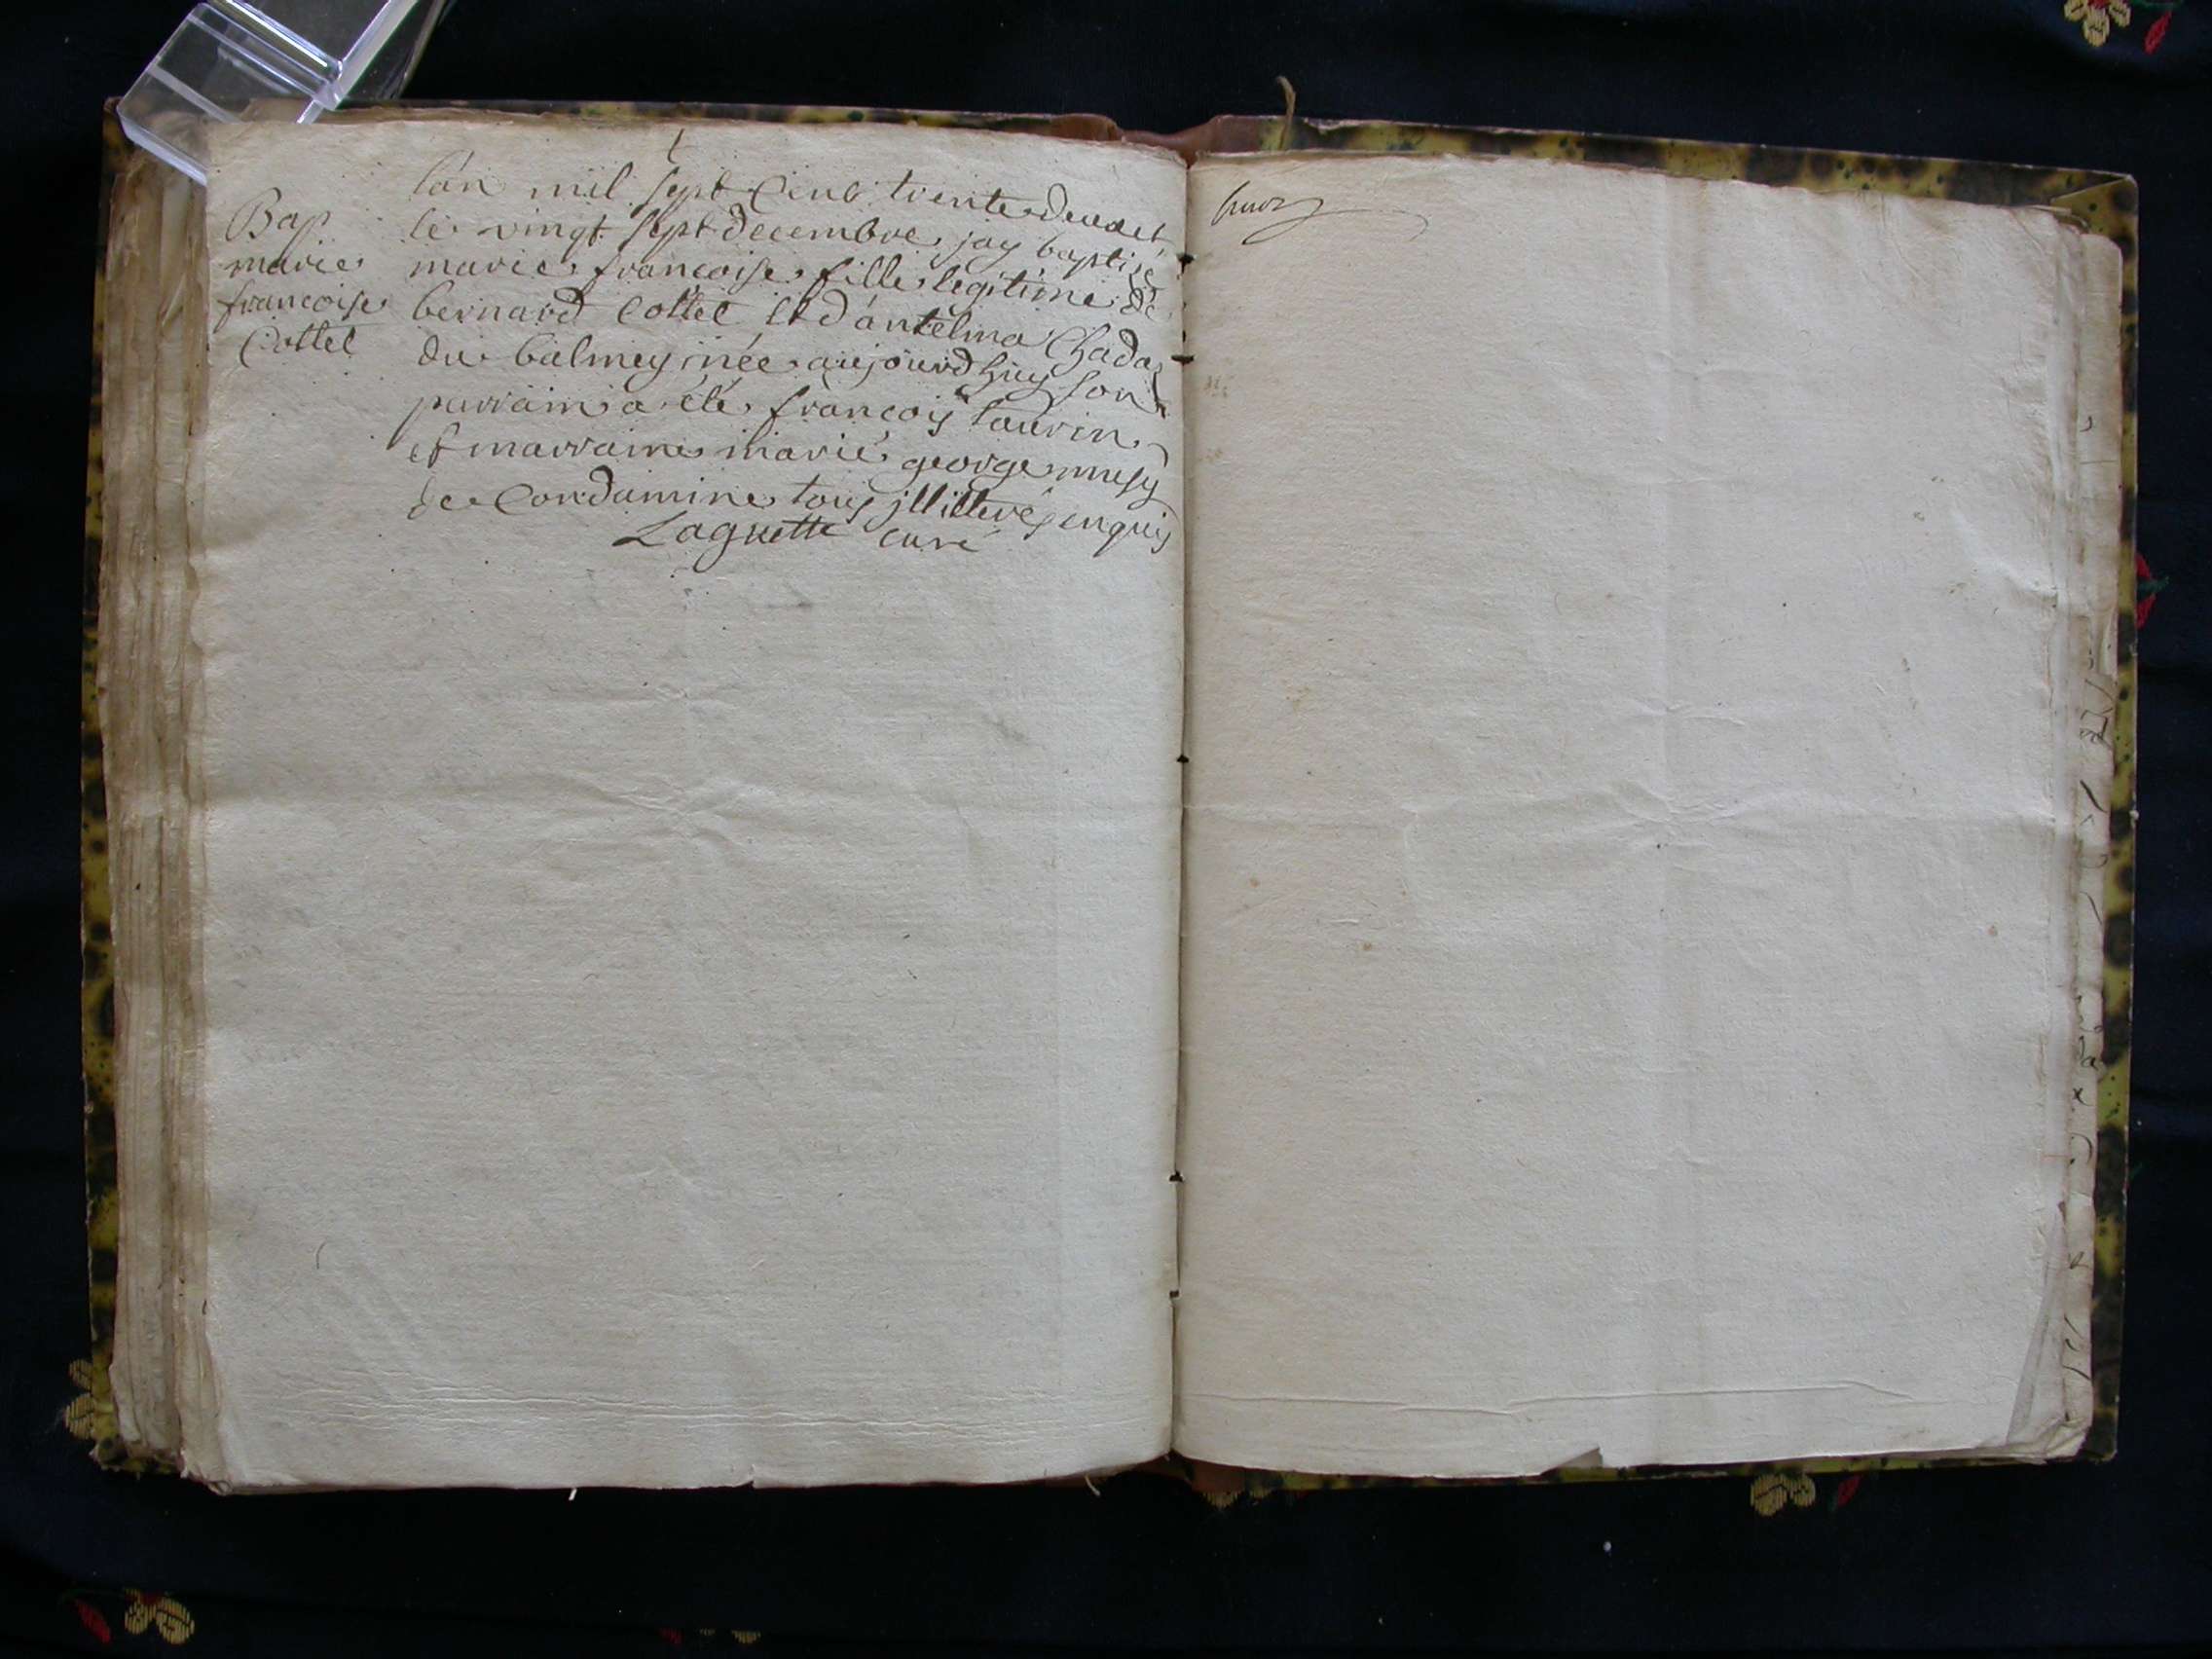 Bap
marie
francoise
Cottet
lán mil sept Cent trente deux et
le vingt sept decembre jay baptisé
marie francoise fille legitime de
bernard Cottet et dántelma Chada
du balmey née aujourdhuy son
parrain a été francois laurin
et marraine marie george musy
de Condamine tous jllitterés enquis
Laguette curé